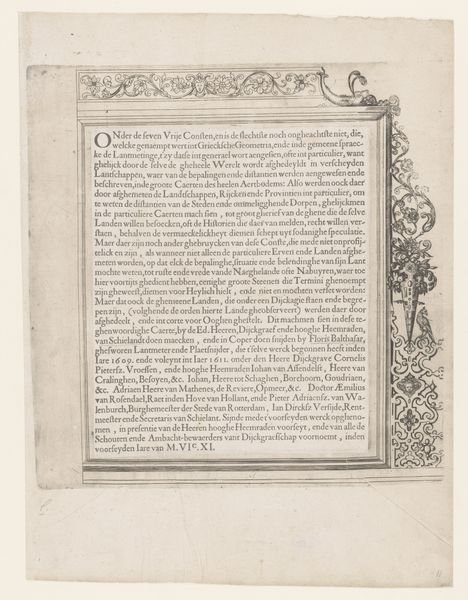 ONder de seven Vrije Consten, en is de slechtste noch ongheachtste niet, die,
welcke genaempt wert int Griecksche Geometria, ende inde gemeene spraec-
ke de Lantmetinge, t'zy datse int generael wort aengesien, ofte int particulier, want
ghelijck door de selve de gheheele Werelt wordt afghedeyldt in verscheyden
Lantschappen, waer van de bepalingen ende distantien werden aengewesen ende
beschreven, inde groote Caerten des heelen Aertbodems: Also werden oock daer
door afghemeten de Landtschappen, Rijcken ende Provintien int particulier, om
te weten de distantien van de Steden ende ommeligghende Dorpen, ghelijckmen
in de particuliere Caerten mach sien, tot groot gherief van de ghene die de selve
Landen willen besoecken, oft de Historien die daer van melden, recht willen ver-
staen, behalven de vermaeckelickheyt diemen schept uyt sodanighe speculatie.
Maer daer zijn noch ander ghebruycken van dese Conste, die mede niet onprofij-
telick en zijn, als wanneer niet alleen de particuliere Erven ende Landen afghe-
meten worden, op dat elck de bepalinghe, situatie ende belendinghe van sijn Lant
mochte weten, tot ruste ende vrede vande Naeghelande ofte Nabuyren, waer toe
hier voortijts ghedient hebben, eenighe groote Steenen die Termini ghenoempt
zijn gheweest, diemen voor Heylich hielt, ende niet en mochten verset worden:
Maer dat oock de ghemeene Landen, die onder een Dijckagie staen ende begre-
pen zijn, (volghende de orden hier te Lande gheobserveert) werden daer door
afghedeelt, ende int corte voor Ooghen ghestelt. Dit machmen sien in dese te-
ghenwoordighe Caerte, by de Ed. Heeren, Dijckgraef ende hooghe Heemraden,
van Schielandt doen maecken, ende in Coper doen snijden by Floris Balthasar,
ghesworen Lantmeter ende Plaetsnijder, die t'selve werck begonnen heeft inden
Iare 1609. ende voleynt int Iaer 1611. onder den Heere Dijckgrave Cornelis
Pietersz. Vroesen, ende hooghe Heemraden Iohan van Assendelft, Heere van
Cralinghen, Besoyen, &c. Iohan, Heere tot Schaghen, Borchoorn, Goudriaen,
&c. Adriaen Heere van Mathenes, de Reviere, Opmeer, &c. Doctor Æmilius
van Rosendael, Raet inden Hove van Hollant, ende Pieter Adriaensz. van Wa-
lenburch, Burghemeester der Stede van Rotterdam, Ian Dircksz Versijde, Rent-
meester ende Secretaris van Schielant. Sijnde mede t'voorseyden werck opgheno-
men, in presentie van de Heeren hooghe Heemraden voorseyt, ende van alle de
Schouten ende Ambacht-bewaerders vant Dijckgraefschap voornoemt, inden
voorseyden Iare van M.VIᶜ.XI.